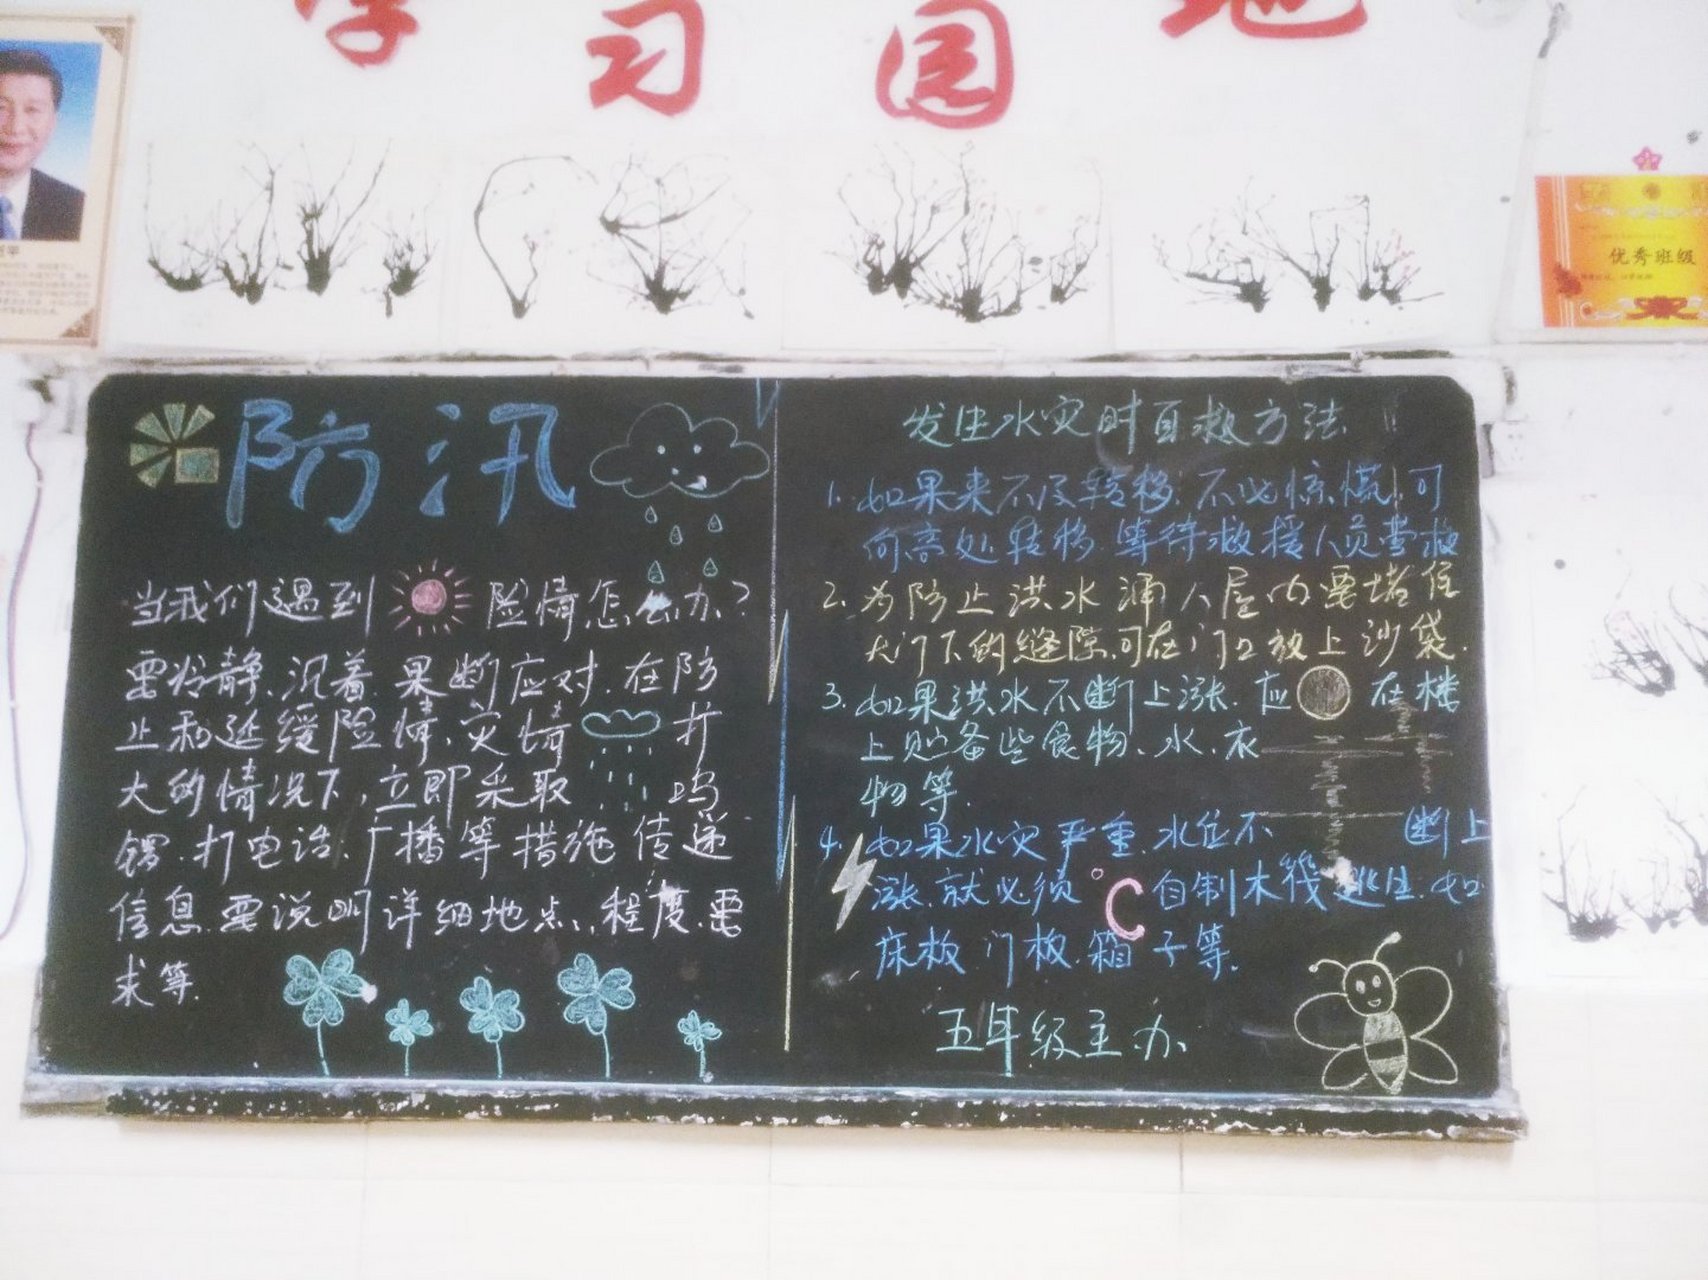 学习园地
优秀班级
防汛
当我们遇到险情怎么办?
要冷静、沉着、果断应对.在防
止和延缓险情、灾情扩
大的情况下,立即采取鸣
锣.打电话、广播等措施传递
信息.要说明详细地点、程度、要
求等.
发生水灾时自救方法
1.如果来不及转移,不必惊慌,可
向高处转移.等待救援人员营救
2.为防止洪水涌入屋内要堵住
大门下的缝隙,可在门口放上沙袋.
3.如果洪水不断上涨.应在楼
上贮备些食物、水、衣
物等.
4.如果水灾严重.水位不断上
涨.就必须℃自制木筏逃生.如
床板.门板.箱子等.
五年级主办